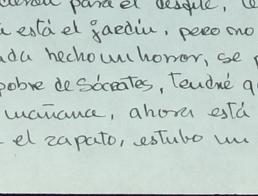 para el desfile,
está el jardín, pero no
hecho un horror, se
pobre de Sócrates, tendré
mañana, ahora está
el zapato, estubo un